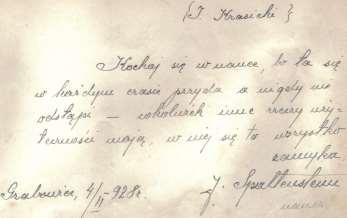 {I. Krasicki}
Kochaj się w nauce, bo ta się
w każdym czasie przyda a nigdy nie
odstąpi — cokolwiek inne rzeczy uży-
teczności mają, w niej się to wszystko
zamyka.
Grabowiec, 4/II-928r. J. Spaltenstein